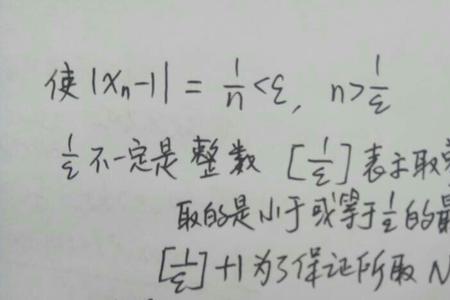 使 |xₙ-1| = 1/n < ε, n > 1/ε
1/ε 不一定是整数 [1/ε] 表示取
取的是小于或等于 1/ε 的最
[1/ε]+1 为了保证所取 N